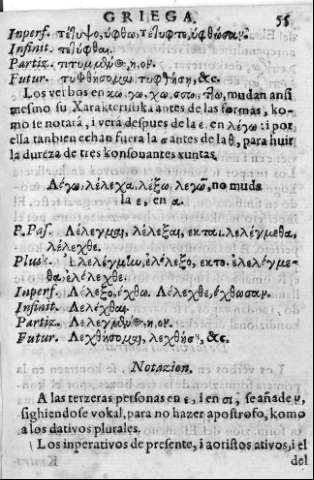 GRIEGA. 55
Inperf. τέτυψο, ύφθω, τέτυφτο, ύφθωσαν.
Infinit. τετύφθαι.
Partiz. τετυμμένος, η, ον.
Futur. τυφθήσομαι, τυφθήση, &c.
Los verbos en κω, γω, χω, σσω, τ7ω, mudan ansi
mesmo su Xarakteristika antes de las formas, ko-
mo se notará, i verà despues de la ε, en λέγω: i por
ella tanbien echan fuera la σ antes de la θ, para huir
la dureza de tres konsonantes xuntas.
Λέγω, λέλεχα, λέξω, λεγῶ, no muda
la ε, en α.
P. Pas. Λέλεγμαι, λέλεξαι, εκται, λελέγμεθα,
λέλεχθε.
Plusk. Ἐλελέγμην, ἐλέλεξο, εκτο, ἐλελέγμε-
θα, ἐλέλεχθε.
Inperf. Λέλεξο, έχθω. Λέλεχθε, έχθωσαν.
Infinit. Λελέχθαι.
Partiz. Λελεγμένος, η, ον.
Futur. Λεχθήσομαι, λεχθήση, &c.
Notazion.
A las terzeras personas en ε, i en σι, se añade ν,
sighiendose vokal, para no hazer apostrofo, komo
a los dativos plurales.
Los inperativos de presente, i aotistos ativos, i el
del